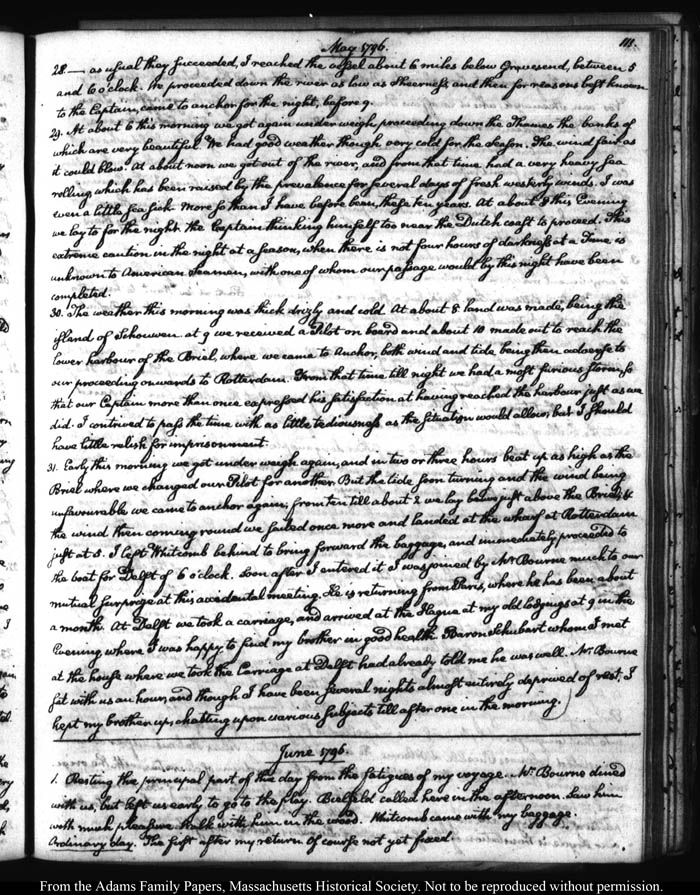 May 1796.
111.
28. — as usual they succeeded, I reached the vessel about 6 miles below Gravesend, between 5
and 6 o'clock. We proceeded down the river as low as Sheerness, and then for reasons best known
to the Captain, came to anchor for the night, before 9.
29. At about 6 this morning we got again under weigh, proceeding down the Thames the banks of
which are very beautiful. We had good weather though very cold for the Season. The wind fair as
it could blow. At about noon we got out of the river, and from that time had a very heavy sea
rolling which has been raised by the prevalence for several days of fresh westerly winds. I was
even a little sea sick. More so than I have before been, these ten years. At about 8 this Evening
we lay to for the night, the Captain thinking himself too near the Dutch coast to proceed. This
extreme caution in the night at a season, when there is not four hours of darkness at a Time is
unknown to American Seamen, with one of whom our passage would by this night have been
completed.
30. The weather this morning was thick drizly and cold. At about 8 land was made, being the
island of Schouwen. at 9 we received a Pilot on board and about 10 made out to reach the
lower harbour of the Briel, where we came to Anchor, both wind and tide being then adverse to
our proceeding onwards to Rotterdam. From that time till night we had a most furious storm, so
that our Captain more than once expressed his satisfaction at having reached the harbour just as we
did. I contrived to pass the time with as little tediousness as the situation would allow, but I should
have little relish for imprisonment.
31. Early this morning we got under weigh again, and in two or three hours beat up as high as the
Briel where we changed our Pilot for another. But the tide soon turning and the wind being
unfavourable we came to anchor again, from ten till about 2 we lay being just above the Briel, &
the wind then coming round we sailed once more and landed at the wharf at Rotterdam
just at 5. I left Whitcomb behind to bring forward the baggage, and immediately proceeded to
the boat for Delft of 6 o'clock. Soon after I entered it I was joined by Mr Bourne much to our
mutual surprize at this accidental meeting. He is returning from Paris, where he has been about
a month. At Delft we took a carriage, and arrived at the Hague at my old lodgings at 9 in the
Evening, where I was happy to find my brother in good health. Baron Schubart whom I met
at the house where we took the Carriage at Delft had already told me he was well. Mr. Bourne
sat with us an hour, and though I have been several nights almost entirely deprived of rest, I
kept my brother up, chatting upon various subjects till after one in the morning.
June 1796.
1. Resting the principal part of the day from the fatigues of my voyage. Mr. Bourne dined
with us, but left us early to go to the play. Bielfeld called here in the afternoon. Saw him
with much pleasure. Walk with him in the wood. Whitcomb came with my baggage.
Ordinary day. The first after my return. Of course not yet fixed.
From the Adams Family Papers, Massachusetts Historical Society. Not to be reproduced without permission.